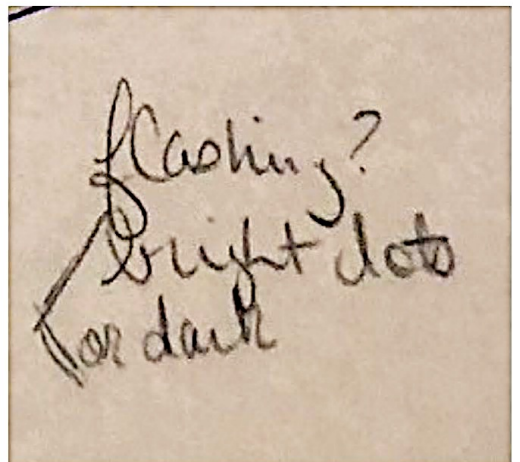 flashing?
bright dots
or dark